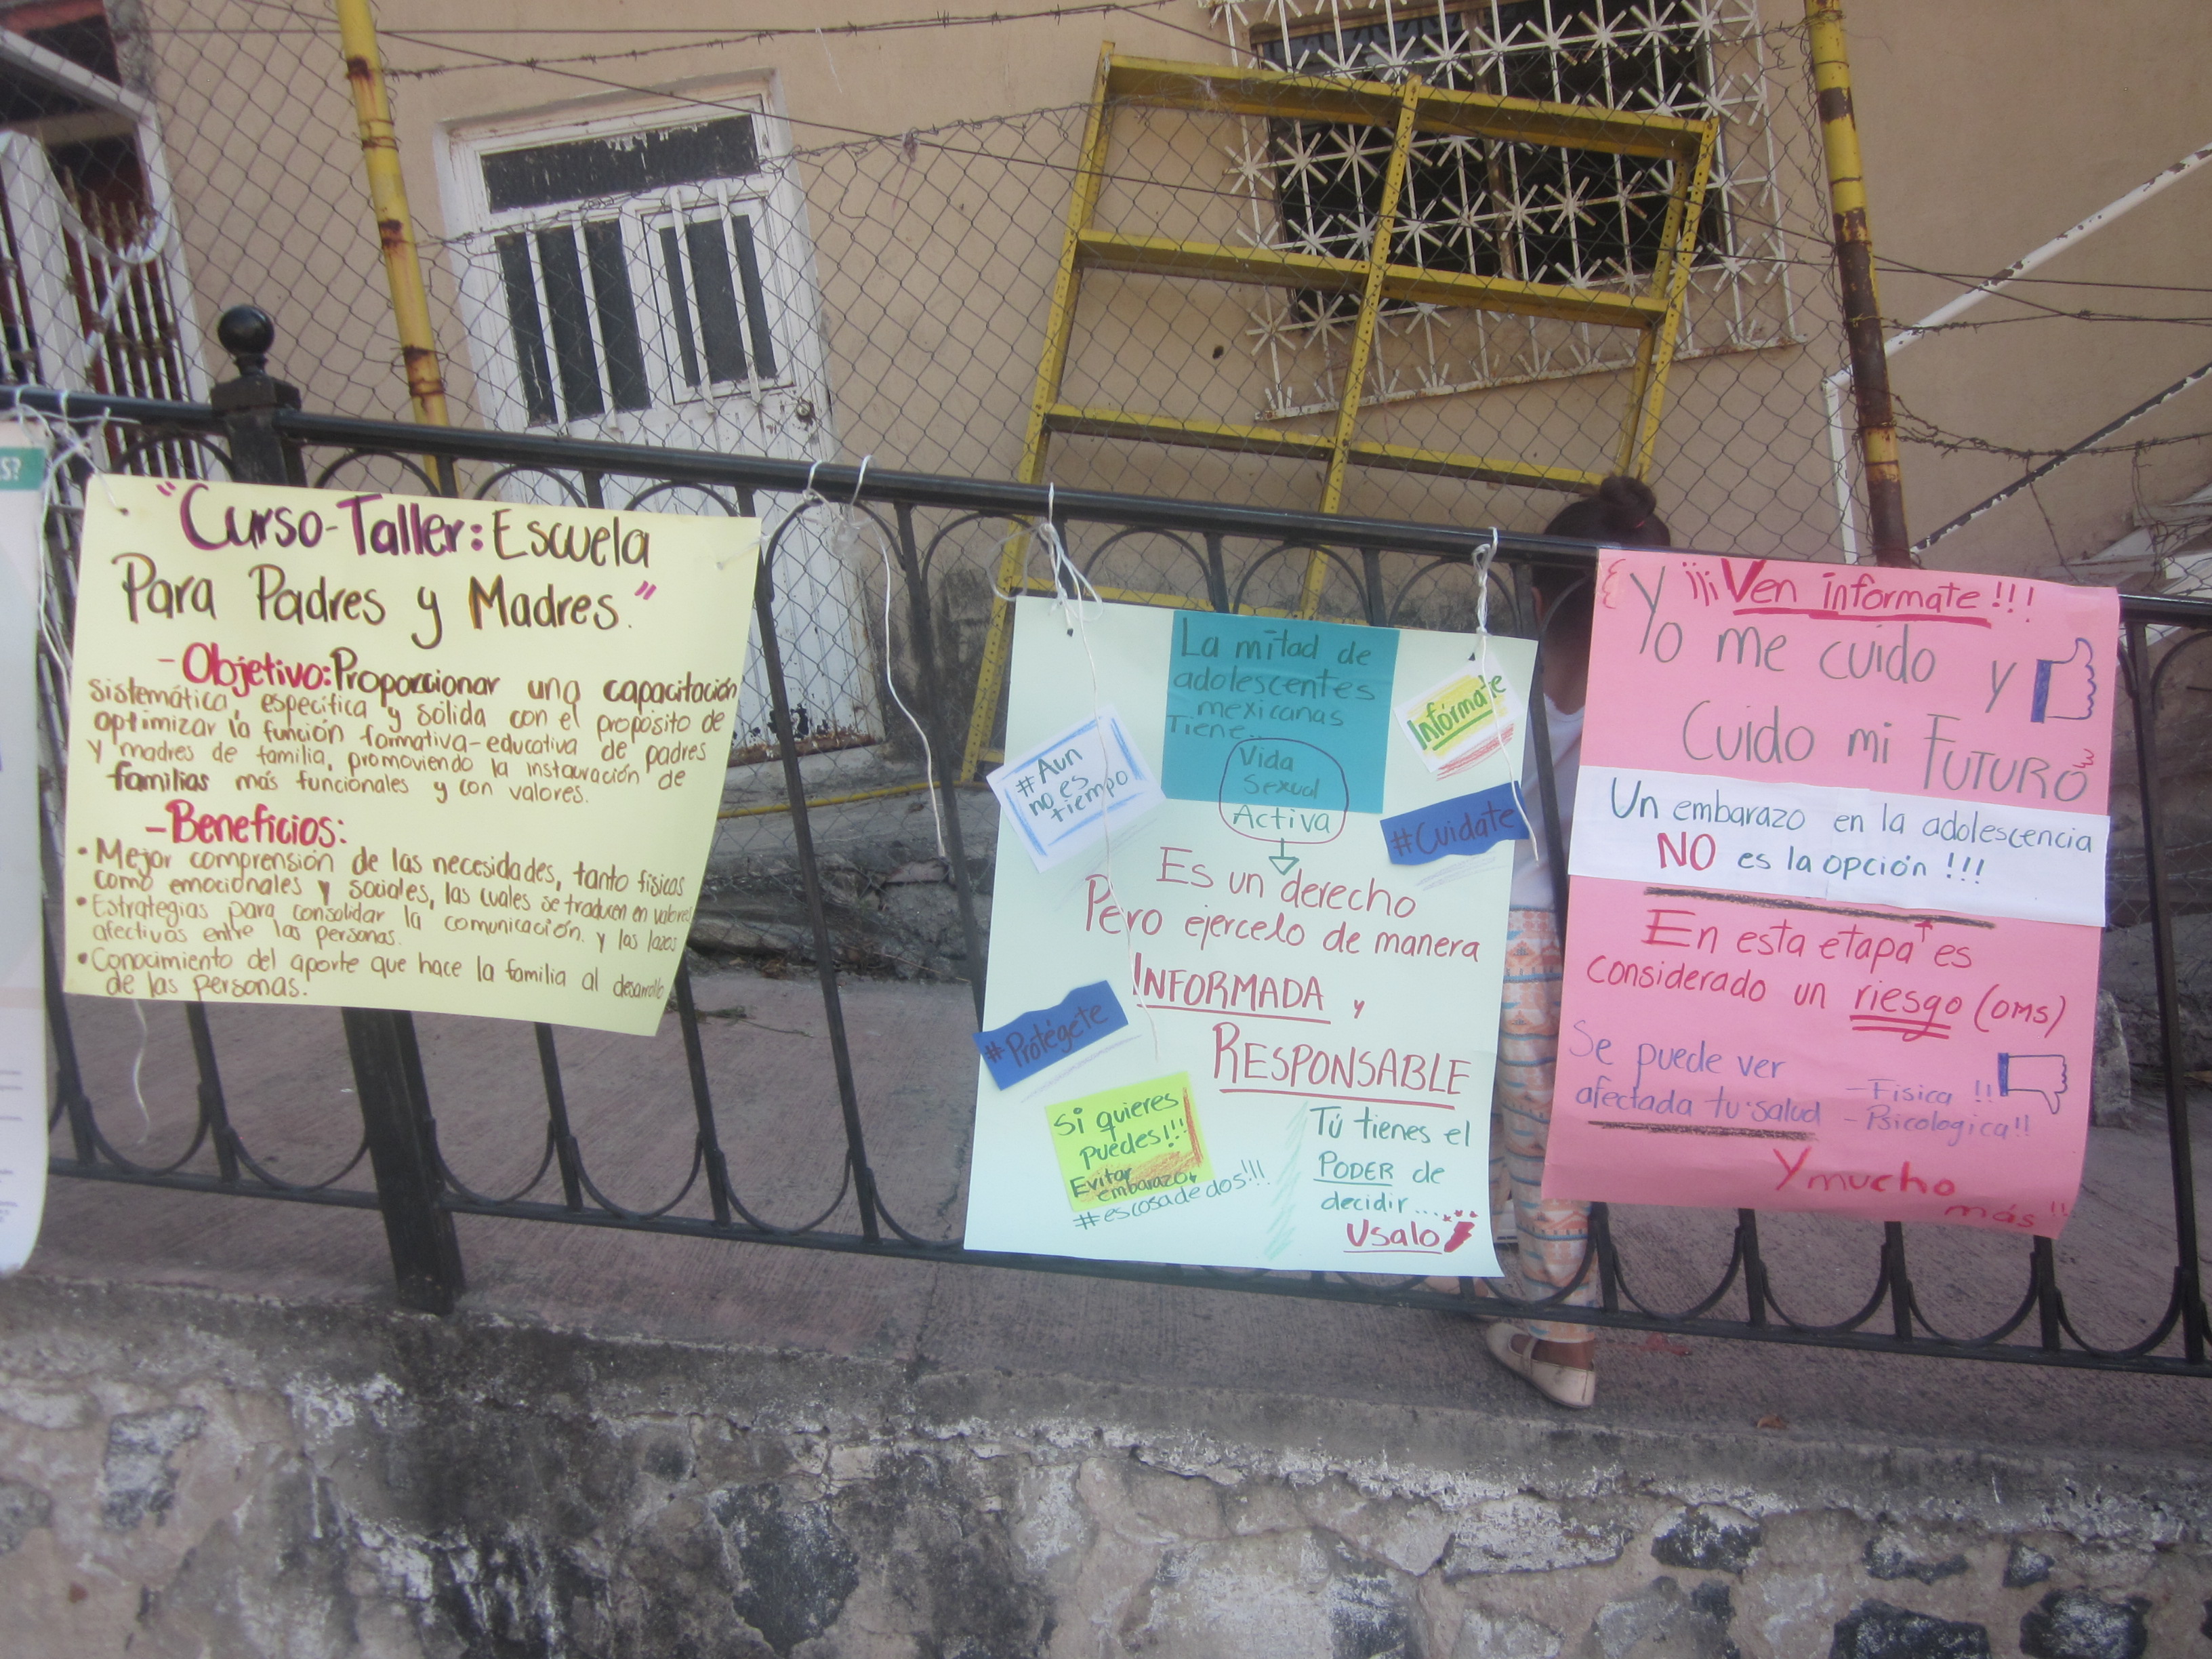 S?
"Curso-Taller: Escuela
Para Padres y Madres."
- Objetivo: Proporcionar una capacitación
sistemática, específica y sólida con el propósito de
optimizar la función formativa-educativa de padres
y madres de familia, promoviendo la instauración de
familias más funcionales y con valores.
- Beneficios:
• Mejor comprensión de las necesidades, tanto físicas
como emocionales y sociales, las cuales se traducen en valores
• Estrategias para consolidar la comunicación. y los lazos
afectivos entre las personas.
• Conocimiento del aporte que hace la familia al desarrollo
de las personas.
La mitad de
adolescentes
mexicanas
Tiene..
Vida
Sexual
Activa
Infórmate
#Aun
no es
tiempo
#Cuidate
Es un derecho
Pero ejercelo de manera
INFORMADA y
RESPONSABLE
#Protégete
Si quieres
puedes!!!
Evitar
embarazo
#escosadedos!!!
Tú tienes el
PODER de
decidir....
Usalo
¡¡¡Ven informate!!!
Yo me cuido y
Cuido mi FUTURO
Un embarazo en la adolescencia
NO es la opción!!!
En esta etapa es
considerado un riesgo (OMS)
Se puede ver
afectada tu salud
- Fisica!!
- Psicologica!!
Y mucho
más!!